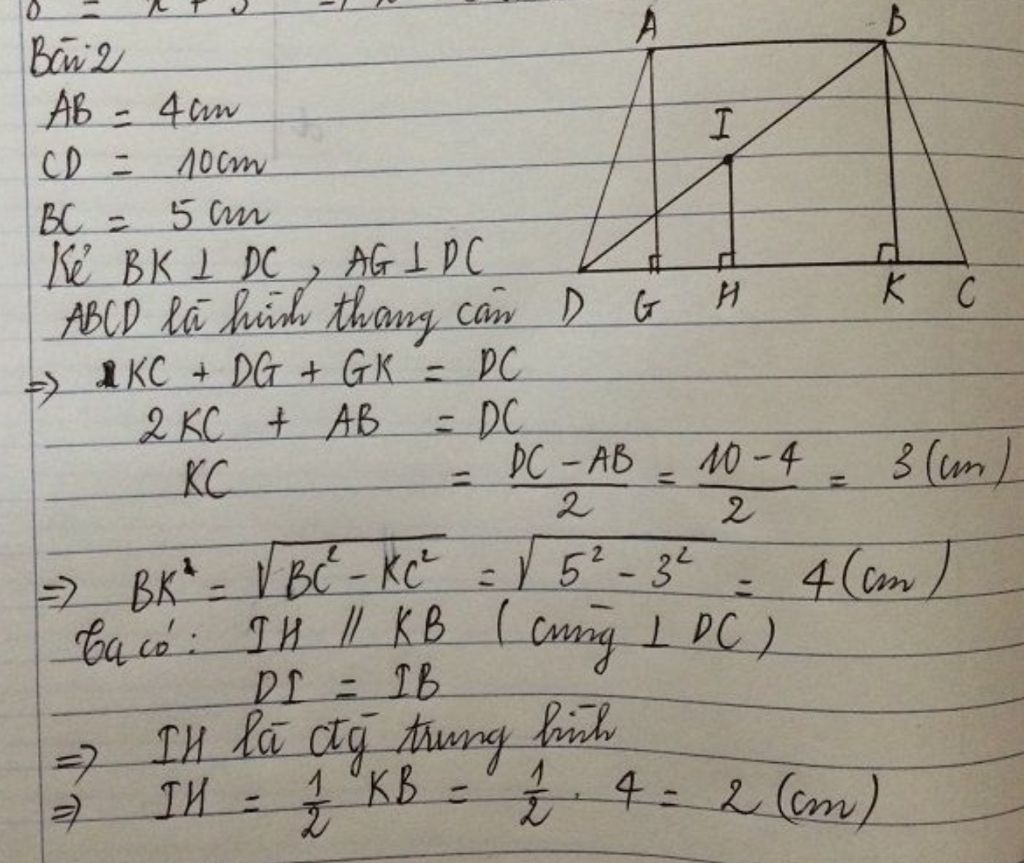 Bài 2
AB = 4cm
CD = 10cm
BC = 5cm
Kẻ BK ⊥ DC, AG ⊥ DC
ABCD là hình thang cân
=> KC + DG + GK = DC
2KC + AB = DC
KC = \frac{DC - AB}{2} = \frac{10 - 4}{2} = 3 (cm)
=> BK = \sqrt{BC² - KC²} = \sqrt{5² - 3²} = 4 (cm)
Ta có: IH // KB (cùng ⊥ DC)
DI = IB
=> IH là đg trung bình
=> IH = \frac{1}{2} KB = \frac{1}{2} . 4 = 2 (cm)
A B
I
D G H K C